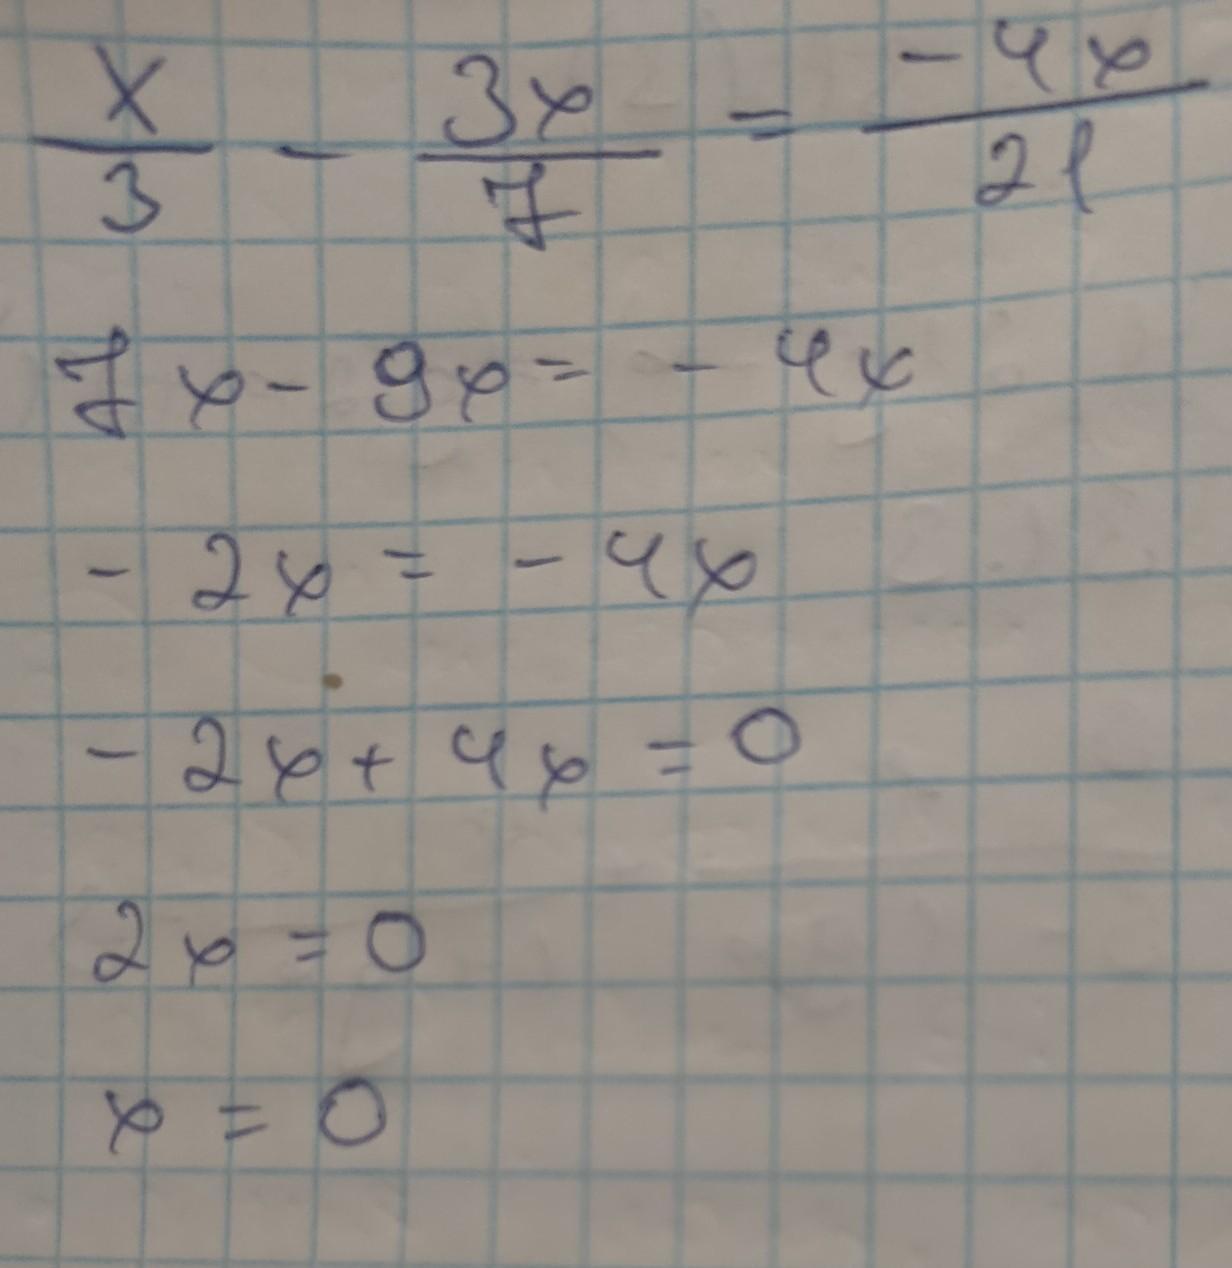 x/3 - 3x/7 = -4x/21
7x - 9x = - 4x
- 2x = - 4x
- 2x + 4x = 0
2x = 0
x = 0